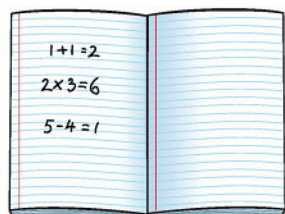 1+1=2
2x3=6
5-4=1